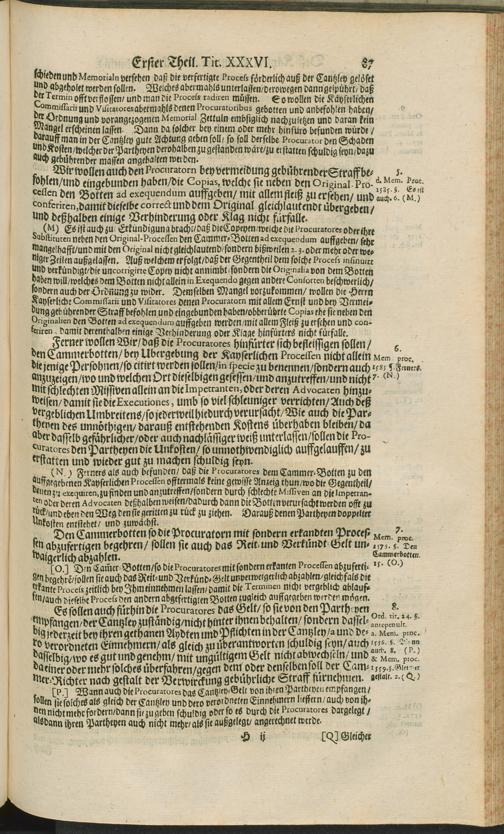 Erster Theil. Tit. XXXVI. 87
schieden und Memorialn versehen daß die verfertigte Process förderlich auß der Cantzley gelöset
und abgeholet werden sollen. Welches abermahls unterlassen/derowegen dann gebührt/ daß
der Termin offt verflossen/ und man die Process radiren müssen. So wollen die Kayserlichen
Commissarii und Visitatores abermahls denen Procuratoribus gebotten und anbefohlen haben/
der Ordnung und vorangezogenen Memorial Zettuln embsiglich nachzusetzen und daran kein
Mangel erscheinen lassen. Dann da solcher bey einem oder mehr hinfüro befunden würde/
darauff man in der Cantzley gute Achtung geben soll/ so soll derselbe Procurator den Schaden
und Kosten/welcher der Partheyen derohalben zugestanden wäre/zu erstatten schuldig seyn/dazu
auch gebührender massen angehalten werden.
Wir wollen auch den Procuratorn bey vermeidung gebührender Straff be-
fohlen/und eingebunden haben/die Copias, welche sie neben den Original-Pro-
cessen den Botten ad exequendum auffgeben/ mit allem fleiß zu ersehen/ und
conferiren, damit dieselbe correct und dem Original gleichlautend übergeben/
und deßhalben einige Verhinderung oder Klag nicht fürfalle.
5.
d. Mem. Proc.
1585. §. Es ist
auch. 6. (M.)
(M) Es ist auch zu Erkündigung bracht/ daß die Copeyen/welche die Procuratores oder ihre
Substituten neben den Original-Processen den Cammer-Botten ad exequendum auffgeben/ sehr
mangelhafft/und mit den Original nicht gleichlautend/sondern bißweilen 2. 3. oder mehr oder we-
niger Zeilen außgelassen. Auß welchem erfolgt/daß der Gegentheil dem solche Process insinuirt
und verkündigt/die uncorrigirte Copey nicht annimbt/sondern die Originalia von dem Botten
haben will/welches dem Botten nicht allein in Exequendo gegen andere Consorten beschwerlich/
sondern auch der Ordnung zu wider. Demselben Mangel vorzukommen/ wollen die Herrn
Kayserliche Commissarii und Visitatores denen Procuratorn mit allem Ernst und bey Vermei-
dung gebührender Straff befohlen und eingebunden haben/obberührte Copias ehe sie neben den
Originalien den Botten ad exequendum auffgeben werden/mit allem Fleiß zu ersehen und con-
feriren, damit derenthalben einige Verhinderung oder Klage hinfürters nicht fürfalle.
Ferner wollen Wir/ daß die Procuratores hinfürter sich befleissigen sollen/
den Cammerbotten/ bey Ubergebung der Kayserlichen Processen nicht allein
die jenige Persohnen/ so citirt werden sollen/in specie zu benennen/sondern auch
anzuzeigen/wo und welchen Ort dieselbigen gesessen/und anzutreffen/und nicht
mit schlechten Missiven allein an die Impetranten, oder deren Advocaten hinzu-
weisen/damit sie die Executiones, umb so viel schleuniger verrichten/ Auch deß
vergeblichen Umbreitens/so jederweil hiedurch verursacht. Wie auch die Par-
theyen des unnöthigen/ darauß entstehenden Kostens überhaben bleiben/ da
aber dasselb gefährlicher/oder auch nachlässiger weiß unterlassen/sollen die Pro-
curatores den Partheyen die Unkosten/ so unnothwendiglich auffgelauffen/ zu
erstatten und wieder gut zu machen schuldig seyn.
6.
Mem. proc.
1585 §. Ferners.
7. (N.)
(N.) Ferners als auch befunden/ daß die Procuratores dem Cammer-Botten zu den
auffgegebenen Kayserlichen Processen offtermals keine gewisse Anzeig thun/wo die Gegentheil/
denen zu exequiren, zu finden und anzutreffen/sondern durch schlechte Missiven an die Impetran-
ten oder deren Advocaten deßhalben weisen/dadurch dann die Botten verursacht werden offt zu
rück/und eben den Weg den sie geritten zu rück zu ziehen. Darauß denen Partheyen doppelter
Unkosten entstehet/ und zuwächst.
Den Cammerbotten so die Procuratorn mit sondern erkandten Proces-
sen abzufertigen begehren/ sollen sie auch das Reit- und Verkünd-Gelt un-
waigerlich abzahlen.
7.
Mem. proc.
1575. §. Den
Cammerbotten
15. (O.)
[O.] Den Camer-Botten/so die Procuratores mit sondern erkanten Processen abzuferti-
gen begehrē/sollen sie auch das Reit- und Verkünd-Gelt unverweigerlich abzahlen/gleichfals die
erkante Process zeitlich bey Ihm einnehmen lassen/ damit die Terminen nicht vergeblich ablauf-
fen/auch dieselbe Process den andern abgefertigten Botten zugleich auffgegeben werden mögen.
Es sollen auch fürthin die Procuratores das Gelt/ so sie von den Partheyen
empfangen/der Cantzley zuständig/nicht hinter ihnen behalten/ sondern dassel-
big jederzeit bey ihren gethanen Aydten und Pflichten in der Cantzley/ a und de-
ro verordneten Einnehmern/ als gleich zu überantworten schuldig seyn/ auch
dasselbig/wo es gut und genehm/ mit ungültigem Gelt nicht abwechseln/ und
da einer oder mehr solches überfahren/gegen dem oder denselben soll der Cam-
mer-Richter nach gestalt der Verwirckung gebührliche Straff fürnehmen.
8.
Ord. tit. 24. §.
antepenult.
a. Mem. proc.
auch. 8. (P.)
& Mem. proc.
gestalt. 2. (Q.)
[P.] Wann auch die Procuratores das Cantzley-Gelt von ihren Partheyen empfangen/
sollen sie solches als gleich der Cantzley und dero verordneten Einnehmern lieffern/ auch von ih-
nen nicht mehr fordern/dann sie zu geben schuldig oder so es durch die Procuratores dargelegt/
als dann ihren Partheyen auch nicht mehr/als sie außgelegt/ angerechnet werde.
H ij [Q] Gleicher